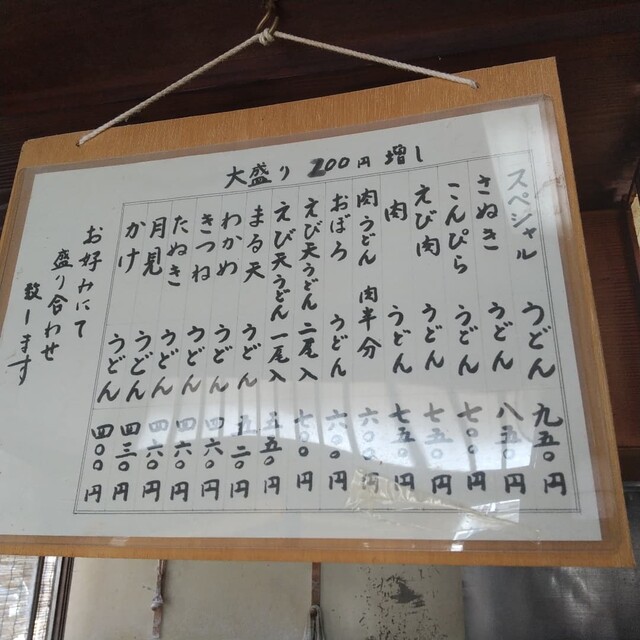 大盛り 200円 増し
スペシャル うどん 九五〇円
さぬき うどん 八五〇円
こんぴら うどん 七〇〇円
えび肉 うどん 七五〇円
肉 うどん 七五〇円
肉うどん 肉半分 六〇〇円
おぼろ うどん 六〇〇円
えび天うどん 二尾入 七〇〇円
えび天うどん 一尾入 五五〇円
まる天 うどん 五二〇円
わかめ うどん 四六〇円
きつね うどん 四六〇円
たぬき うどん 四六〇円
月見 うどん 四三〇円
かけ うどん 四〇〇円
お好みにて
盛り合わせ
致します